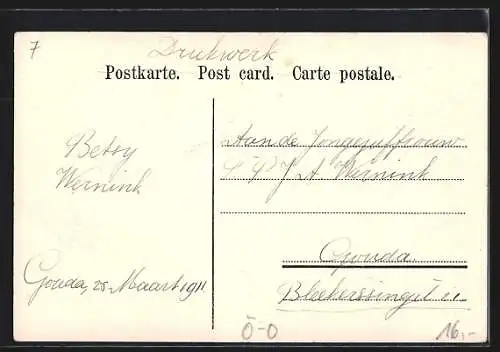 7
Drukwerk
Postkarte. Post card. Carte postale.
Betsy
Wernink
Gouda, 25 Maart 1911
Aan de Jongejuffrouw
A Wernink
Gouda
Bleekerssingel
O-O
16,-